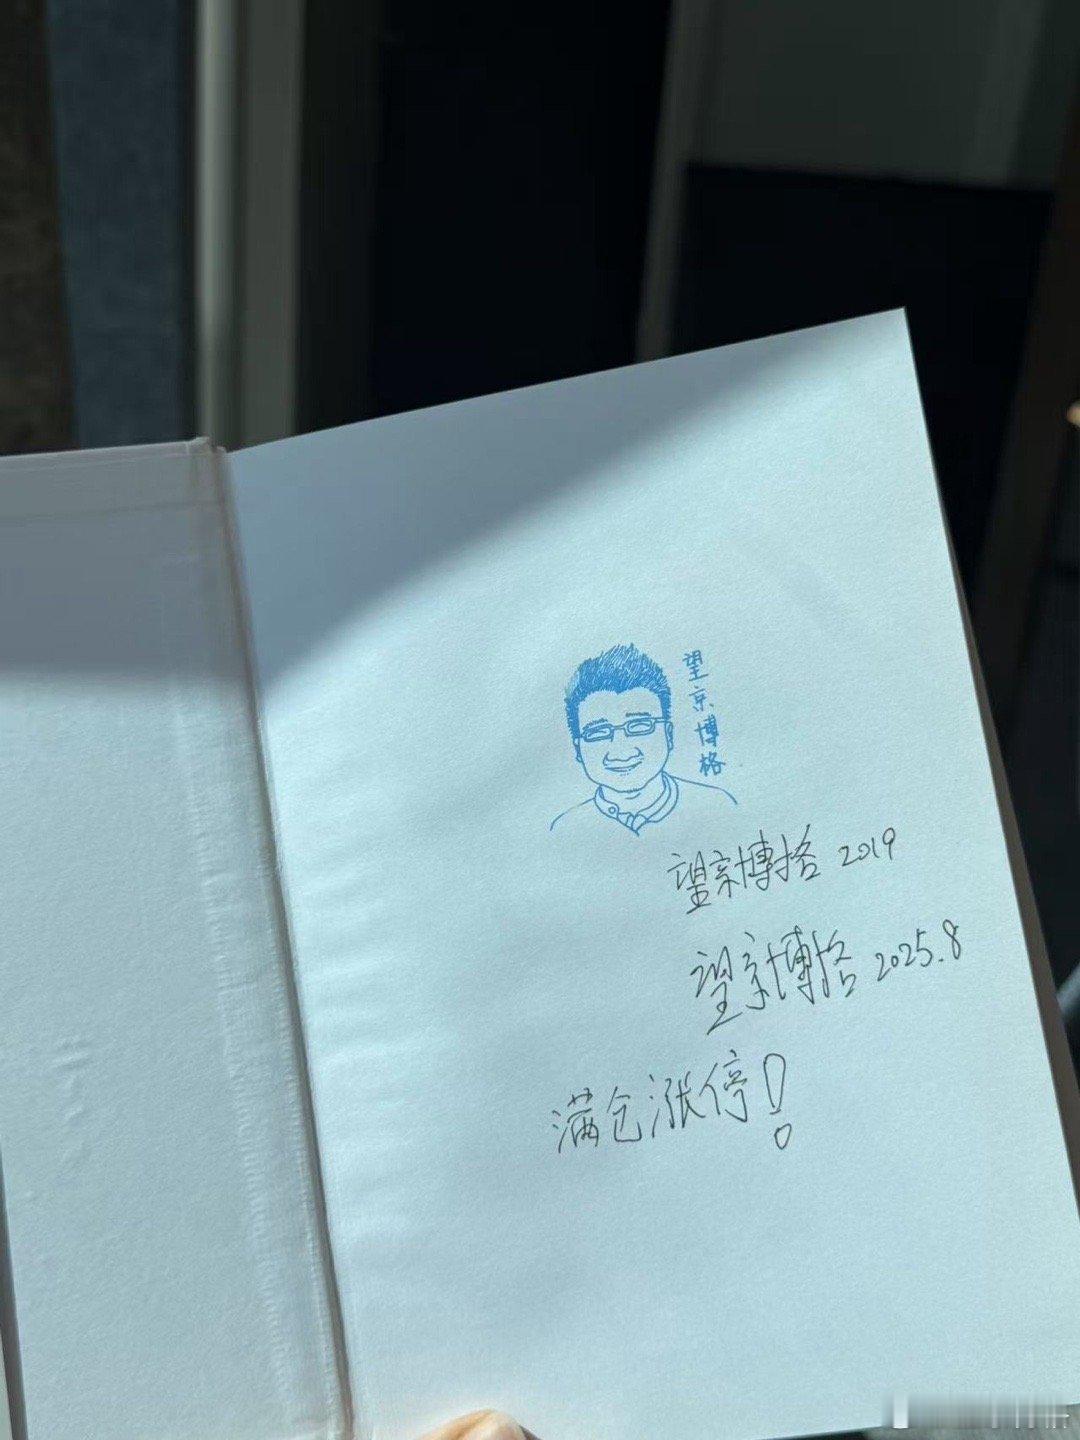 望京博格
望京博格 2019
望京博格 2025.8
满仓涨停！